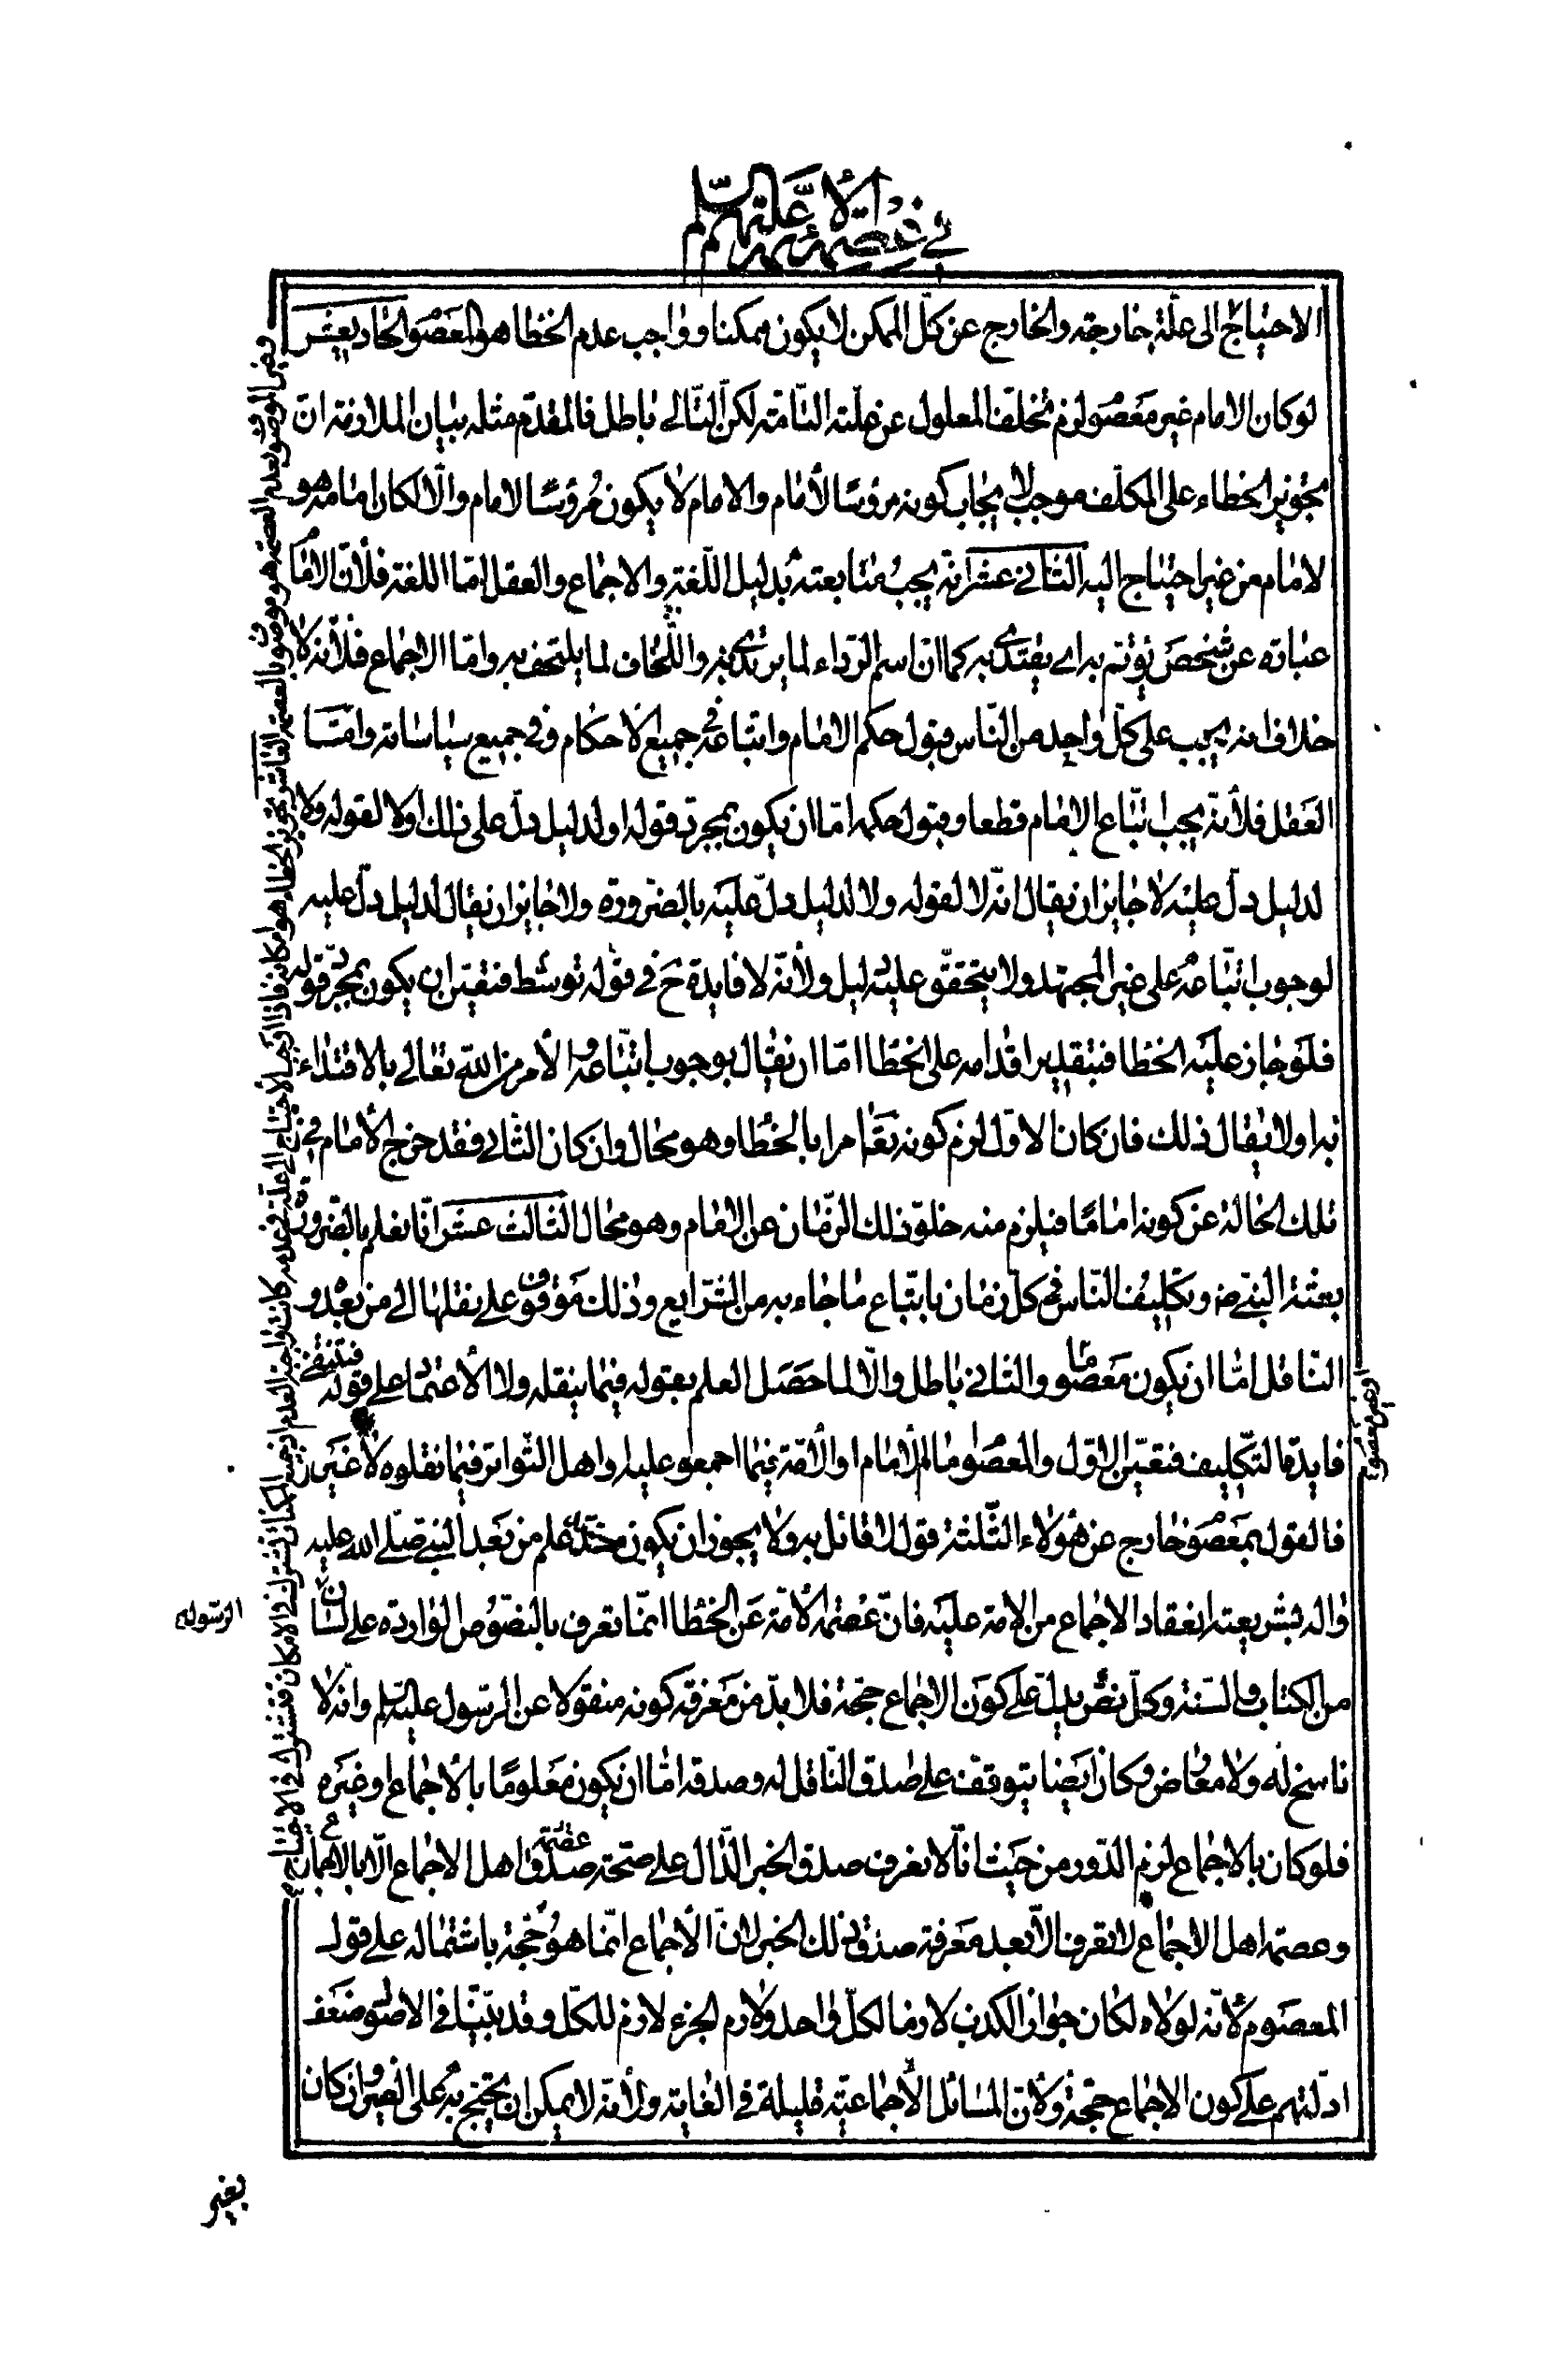 في عصمة الأئمة عليهم السلام
الاحتياج الى علة خارجة والخارج عن كل الممكن لا يكون ممكنا وواجب عدم الخطا هو المعصوم الحاديعشر
لو كان الامام غير معصوم لزم تخلف المعلول عن علته التامة لكن التالى باطل فالمقدم مثله بيان الملازمة ان
تجويز الخطاء على المكلف موجب لايجاب كونه مرؤسا لامام والامام لا يكون مرؤسا لامام والا لكان امامه هو
الامام من غير احتياج اليه الثانى عشر انه يجب متابعته بدليل اللغة والاجماع والعقل اما اللغة فلان الامام
عبارة عن شخص يؤتم به اى يقتدى به كما ان اسم الرداء لما يرتدى به واللحاف لما يلتحف به واما الاجماع فلانه لا
خلاف انه يجب على كل واحد من الناس قبول حكم الامام واتباعه فى جميع الاحكام وفى جميع سياساته واما
العقل فلانه يجب اتباع الامام قطعا وقبول حكمه اما ان يكون بمجرد قوله او لدليل دل على ذلك او لا لقوله ولا
لدليل دل عليه لا جايز ان يقال انه لا لقوله ولا لدليل دل عليه بالضرورة ولا جايز ان يقال لدليل دل عليه
لوجوب اتباعه على غير المجتهد ولا يتحقق عليه دليل ولانه لا فايدة ح فى قوله توسط فتعين ان يكون بمجرد قوله
فلو جاز عليه الخطا فبتقدير اقدامه على الخطا اما ان نقال بوجوب اتباعه والأمر من الله تعالى بالاقتداء
به او لا يقال ذلك فان كان الاول لزم كونه تعالى امرا بالخطا وهو محال وان كان الثانى فقد خرج الامام فى
تلك الحالة عن كونه اماما فيلزم منه خلو ذلك الزمان عن الامام وهو محال الثالث عشر انا نعلم بالضرورة
بعثة النبى ص وتكليف الناس فى كل زمان باتباع ما جاء به من الشرايع وذلك موقوف على نقلها الى من بعده و
الناقل اما ان يكون معصوما والثانى باطل والا لما حصل العلم بقوله فيما ينقله ولا الاعتماد على قوله فتنتفى
او غير معصوم
فايدة التكليف فتعين الاول والمعصوم اما الامام او الامة فيما اجمعوا عليه او اهل التواتر فيما نقلوه لا غير
فالقول بمعصوم خارج عن هؤلاء الثلثة قول لا قائل به ولا يجوز ان يكون علم من بعد النبى صلى الله عليه
واله بشريعته انعقاد الاجماع من الامة عليه فان عصمة الامة عن الخطا انما تعرف بالنصوص الواردة على لسان
الرسول
من الكتاب والسنة وكل نص يدل على كون الاجماع حجة فلا بد من معرفة كونه منقولا عن الرسول عليه السلم وانه لا
ناسخ له ولا معارض وكان ايضا يتوقف على صدق الناقل له وصدقه اما ان يكون معلوما بالاجماع او غيره
فلو كان بالاجماع لزم الدور من حيث انا لا نعرف صدق الخبر الدال على صحة عصمة اهل الاجماع الا بالاجماع
وعصمة اهل الاجماع لا تعرف الا بعد معرفة صدق ذلك الخبر لان الاجماع انما هو حجة باشتماله على قول
المعصوم لانه لولاه لكان جواز الكذب لازما لكل واحد ولازم الجزء لازم للكل وقد بينا فى الاصول ضعف
ادلتهم على كون الاجماع حجة ولان المسائل الاجماعية قليلة فى الغاية ولانه لا يمكن ان يحتج به على الغير وان كان
بغير